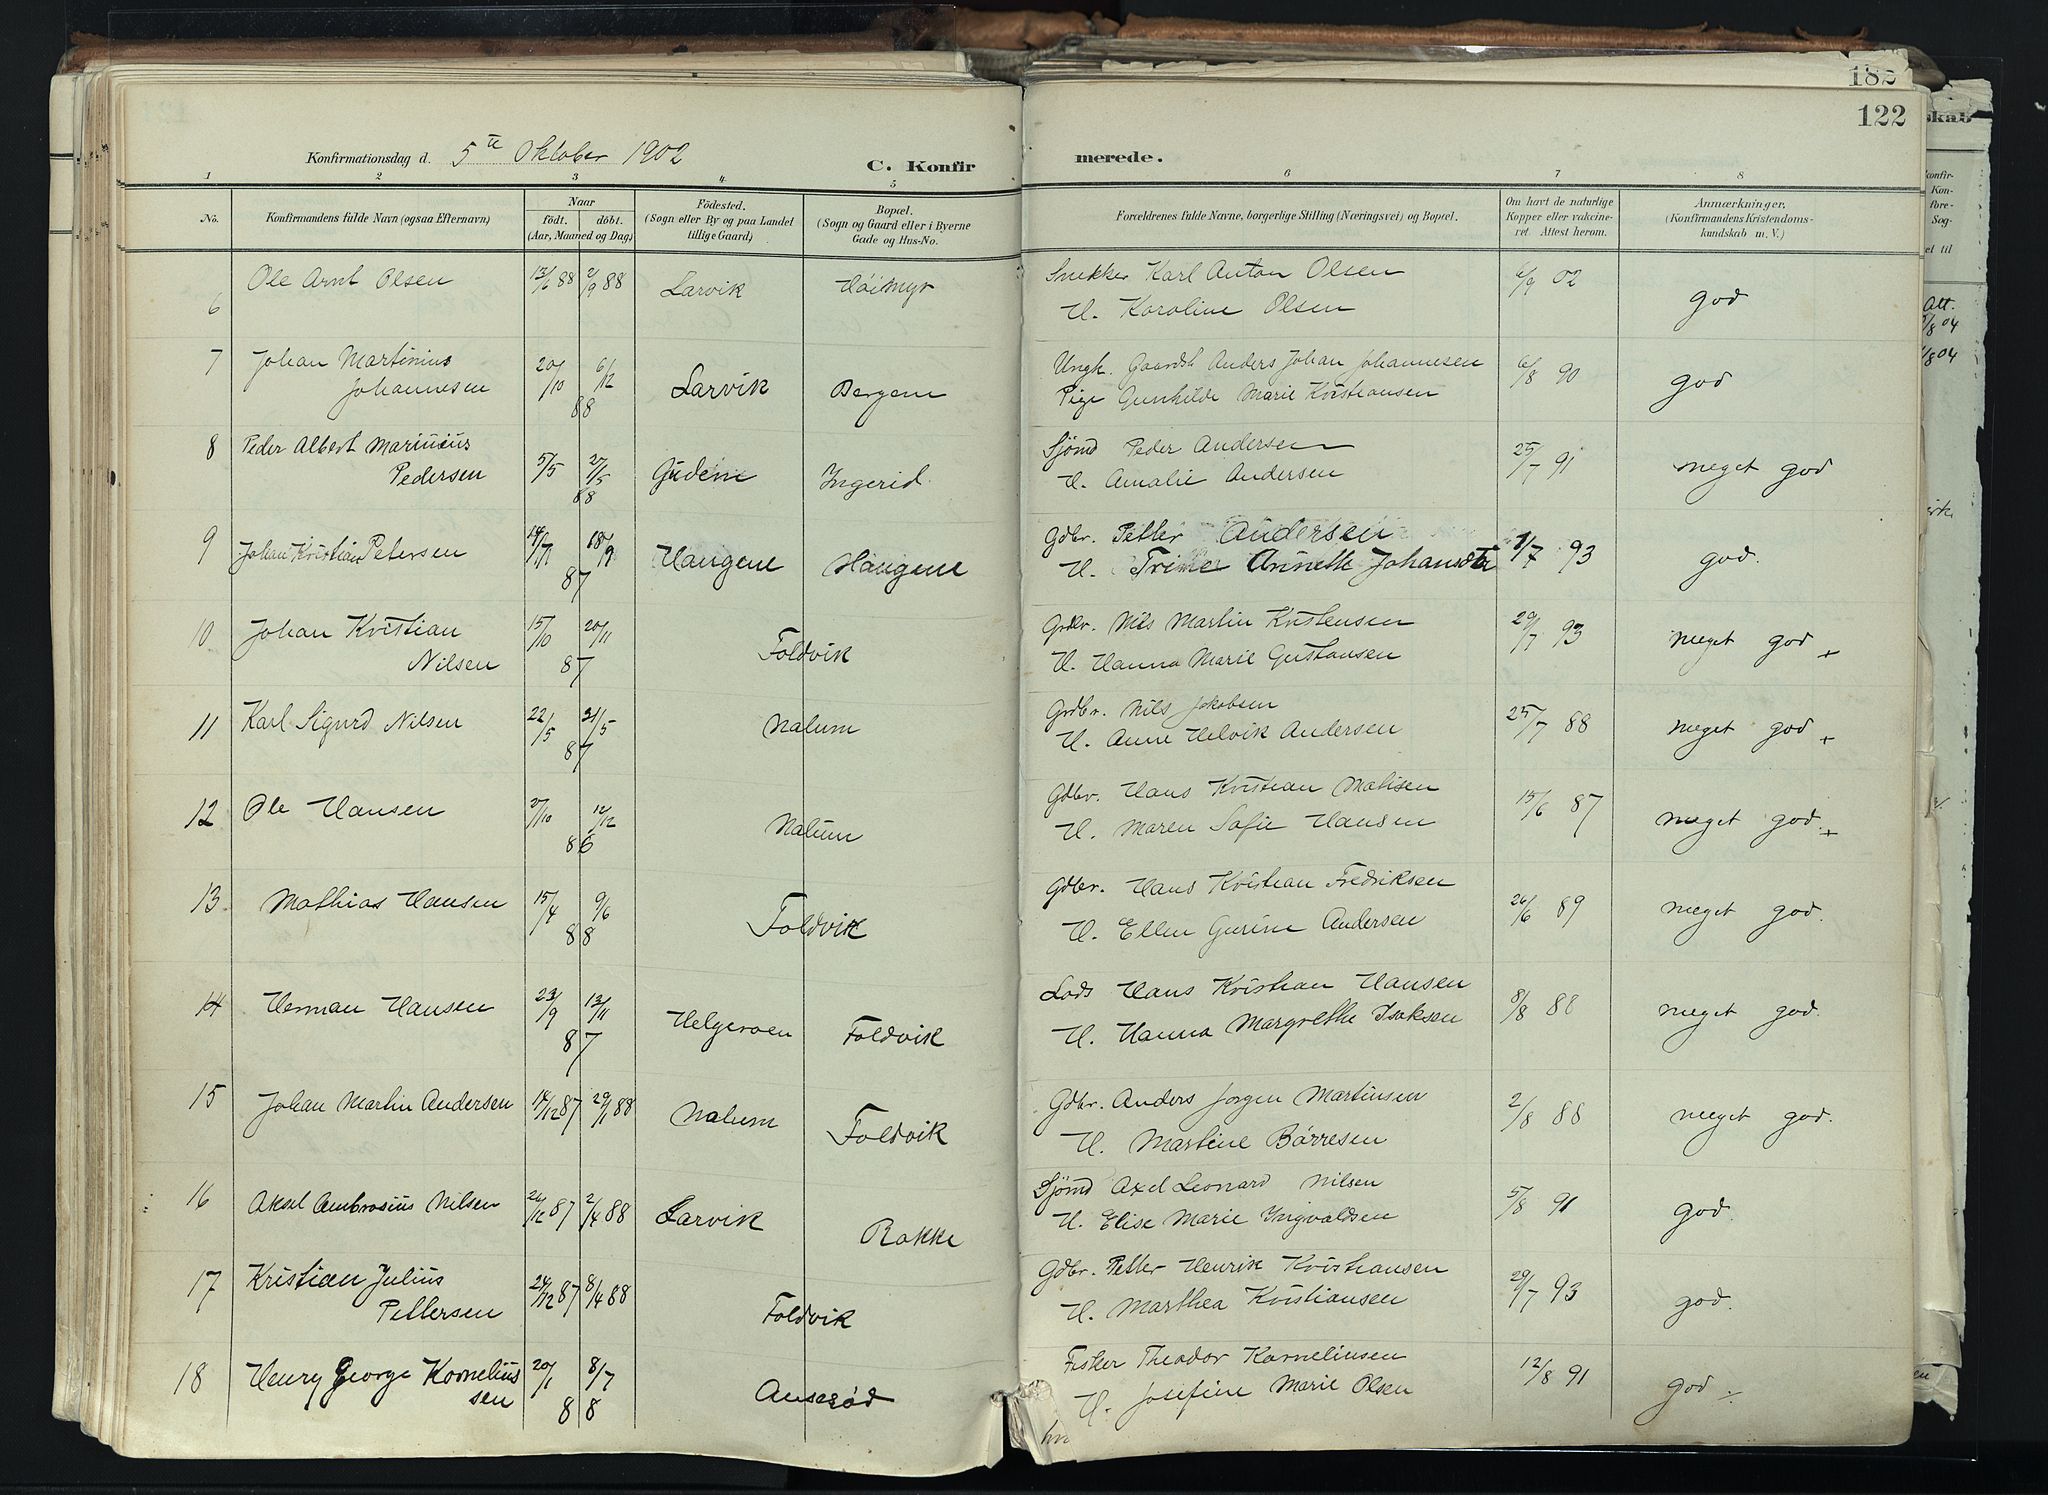 182
122
Konfirmationsdag d. 5te Oktober 1902
C. Konfirmerede.
1 2 3 4 5 6 7 8
No. Konfirmandens fulde Navn (ogsaa Efternavn) Naar födt. döbt. (Aar, Maaned og Dag) Födested. (Sogn eller By og paa Landet tillige Gaard) Bopæl. (Sogn og Gaard eller i Byerne Gade og Hus-No. Forældrenes fulde Navne, borgerlige Stilling (Næringsvei) og Bopæl. Om havt de naturlige Kopper eller vakcineret. Attest herom. Anmærkninger. (Konfirmandens Kristendomskundskab m. V.)
6 Ole Arnt Olsen 13/6 88 2/9 88 Larvik Höimyr Snekker Karl Anton Olsen 6/9 02 god
H. Karoline Olsen
7 Johan Martinius 20/10 6/12 Larvik Bergene Ungk. Gaardst Anders Johan Johannesen 6/8 90 god
Johannesen 88 Pige Gunhilde Marie Kristiansen
8 Peder Albert Marinius 5/5 27/5 Gudem Ingerid Sjömd Peder Andersen 25/7 91 meget god
Pedersen 88 H. Amalie Andersen
9 Johan Kristian Petersen 14/7 18/9 Haugene Haugene Gdbr. Petter Andersen 1/7 93 god.
87 H. Trine Annette Johansdtr
10 Johan Kristian 15/10 20/11 Foldvik Grdbr. Nils Martin Kristensen 29/7 93 meget god +
Nilsen 87 H. Hanna Marie Gustavsen
11 Karl Sigurd Nilsen 22/5 31/5 Nalum Grdbr. Nils Jakobsen 25/7 88 meget god +
87 H. Anne Helvik Andersen
12 Ole Hansen 27/10 12/12 Nalum Gdbr. Hans Kristian Matisen 15/6 87 meget god. +
86 H. Maren Sofie Hansen
13 Mathias Hansen 15/4 9/6 Foldvik Gdbr. Hans Kristian Fredriksen 26/6 89 meget god.
88 H. Ellen Gurine Andersen
14 Herman Hansen 23/9 13/11 Helgeroen Foldvik Lods Hans Kristian Hansen 8/8 88 meget god.
87 H. Hanna Margrethe Isaksen
15 Johan Martin Andersen 14/12 87 29/1 88 Nalum Foldvik Gdbr. Anders Jorgen Martinsen 2/8 88 meget god.
H. Martine Börresen
16 Aksel Ambrosius Nilsen 26/12 87 2/4 88 Larvik Rakke Sjömd Axel Leonard Nilsen 5/8 91 god.
H. Elise Marie Ingvaldsen
17 Kristian Julius 24/12 87 8/4 88 Foldvik Gdbr. Petter Henrik Kristiansen 29/7 93 god.
Pettersen H. Marthea Kristiansen
18 Henry George Kornelius 20/1 8/7 Auserød Fisker Theodor Korneliusen 12/8 91 god
sen 88 H. Josefine Marie Olsen
skab
Att.